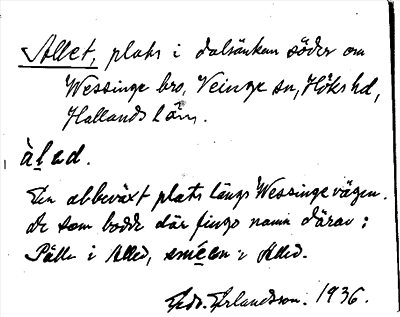 Allet, plats i dalsänkan söder om
Wessinge bro, Veinge sn, Höks hd,
Hallands län.
àḷəd.
En albeväxt plats längs Wessingevägen.
de som bodde där fingo namn därav:
Pålle i Alled, sméən i Alled.
Edv. Erlandsson. 1936.